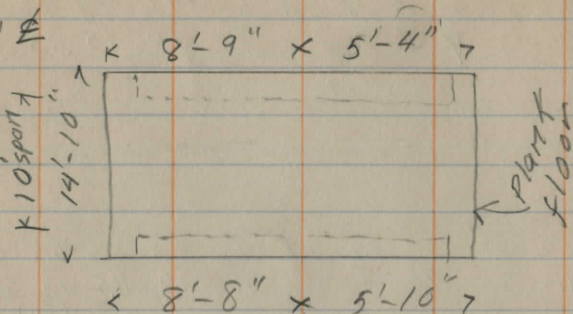 8'-9" x 5'-4"
10' span
14'-10"
plant
floor
8'-8" x 5'-10"